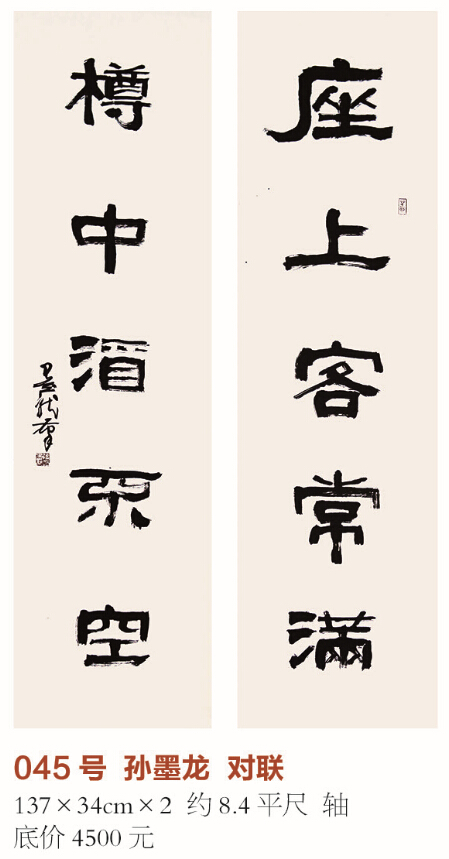 座上客常满
樽中酒不空
墨龙笔
045号 孙墨龙 对联
137×34cm×2 约8.4平尺 轴
底价4500元